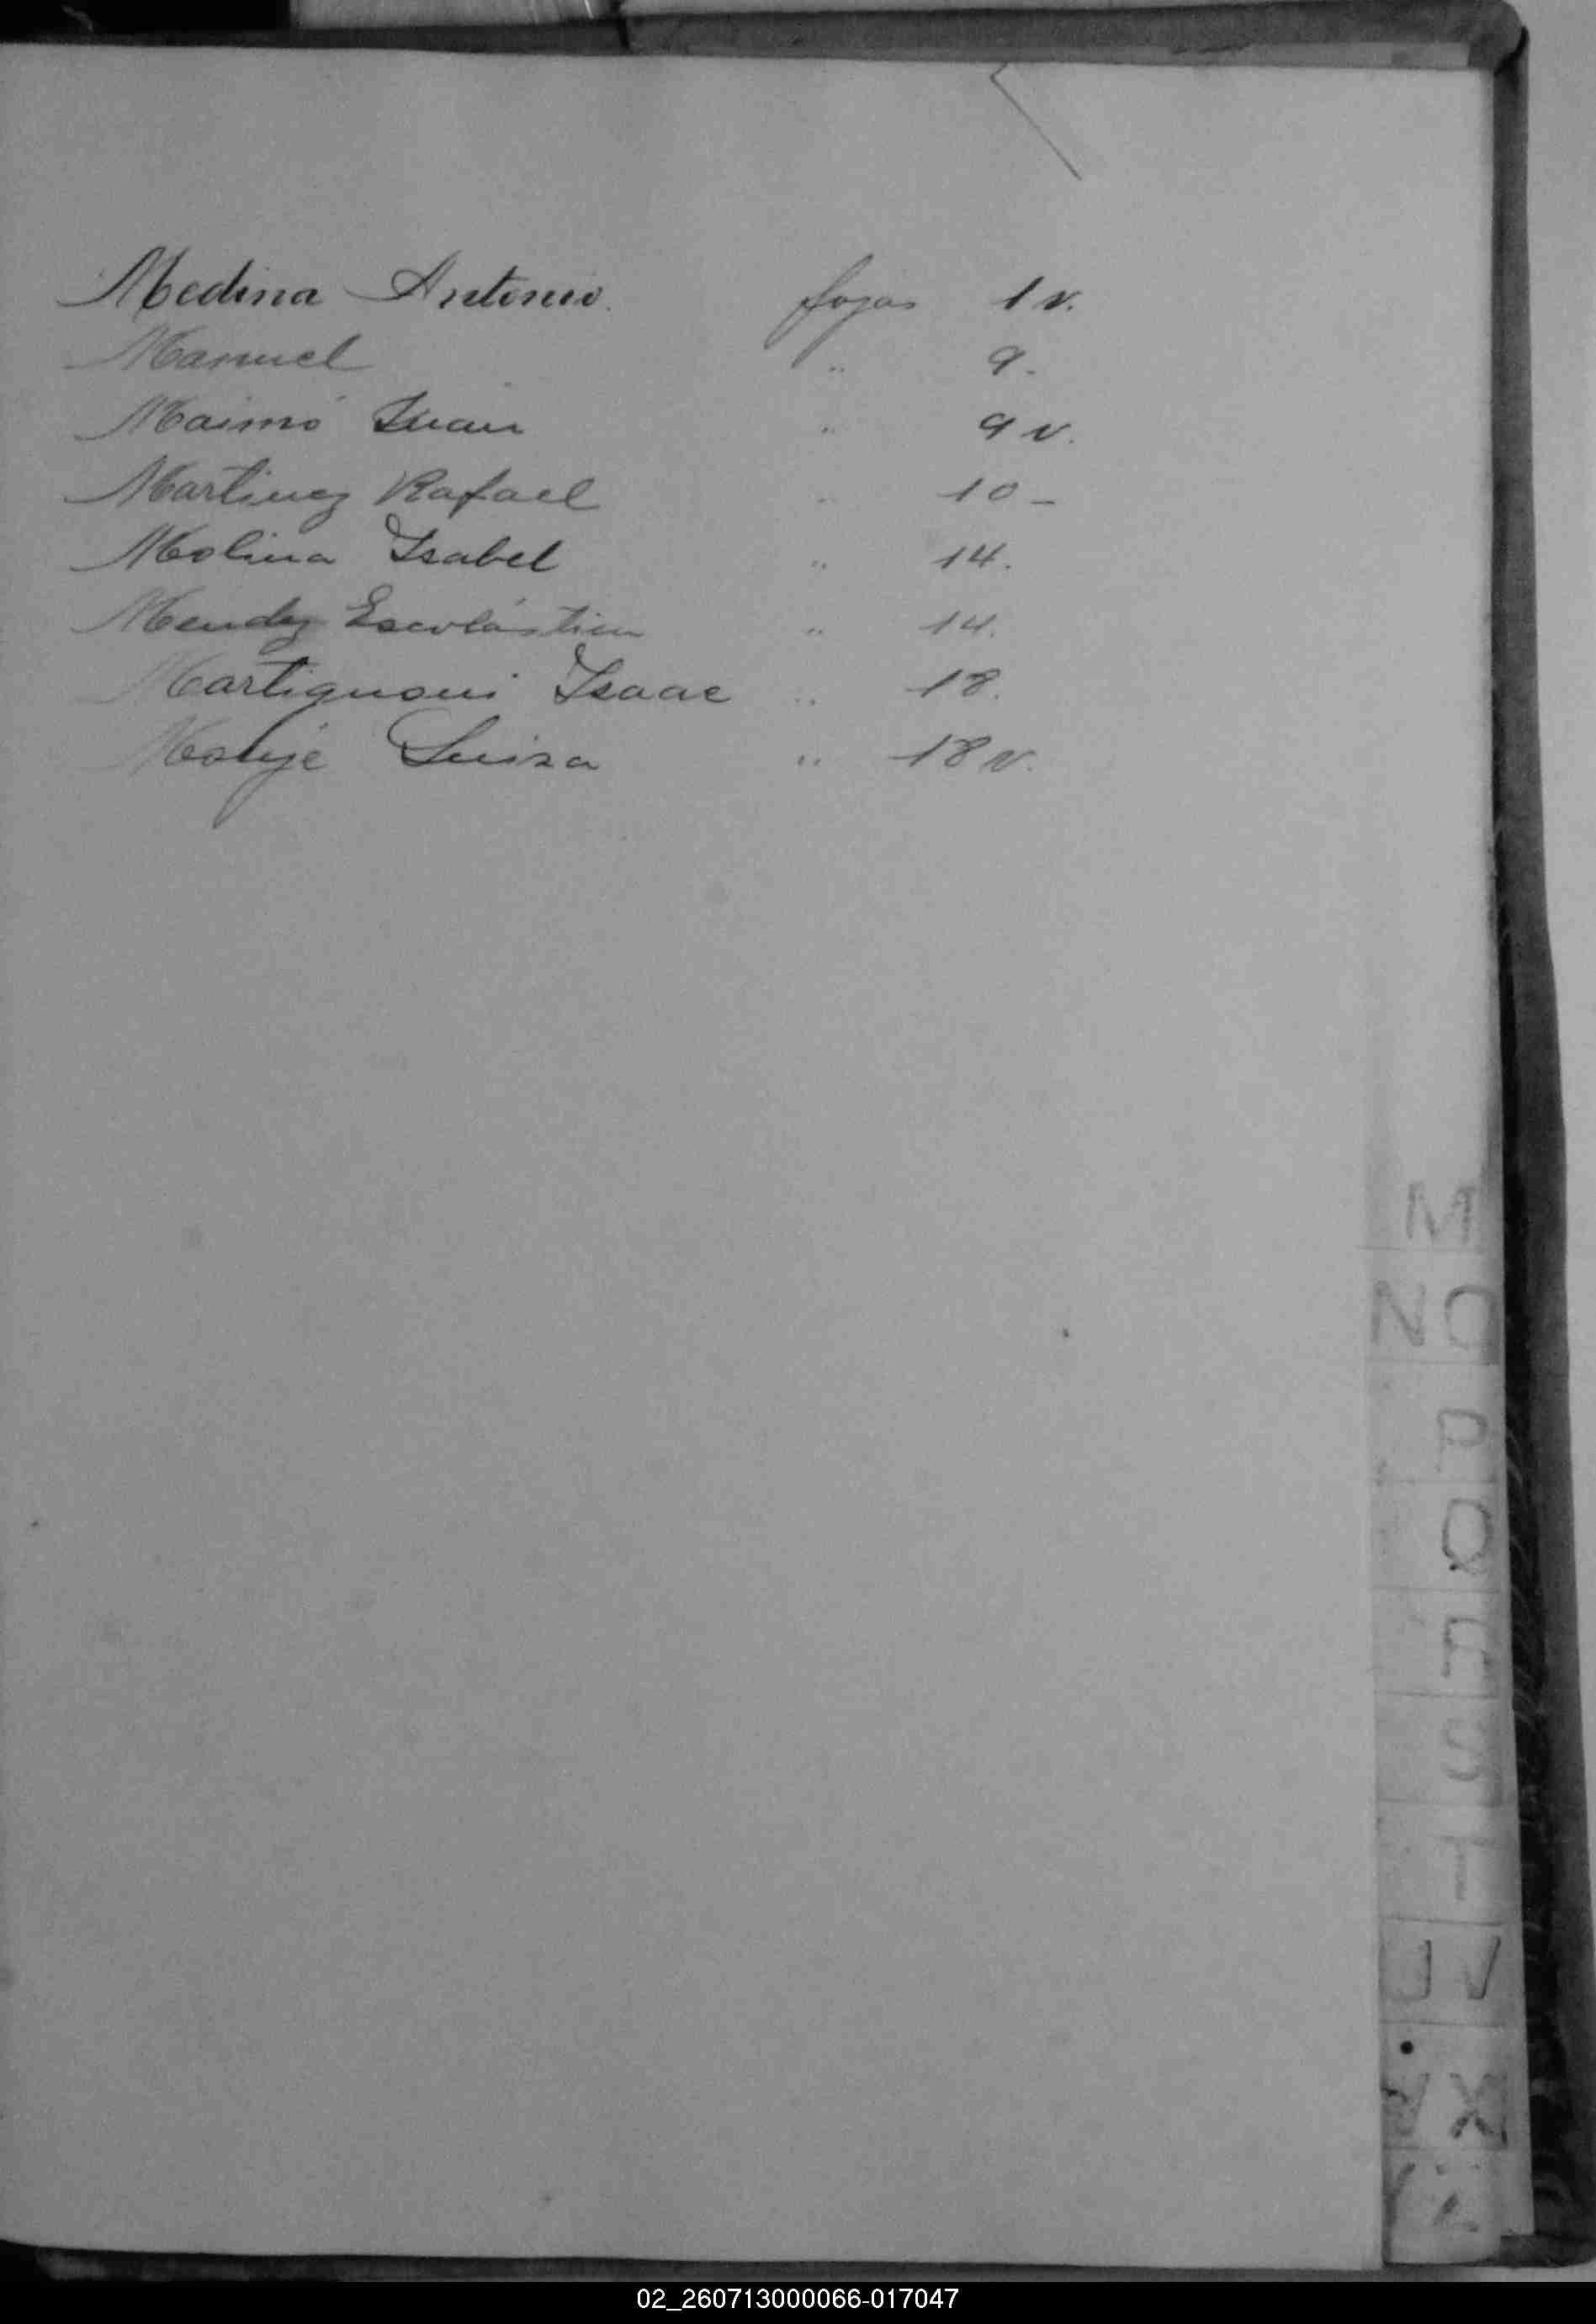 Medina Antonio. fojas 1 v.
Manuel " 9.
Maimó Juan " 9 v.
Martinez Rafael " 10 -
Molina Isabel " 14.
Mendez Escolástica " 14.
Martignoni Isaac " 18.
Luisa " 18 v.
M
N O
P
Q
R
S
T
U V
W X
Y Z
02_260713000066-017047